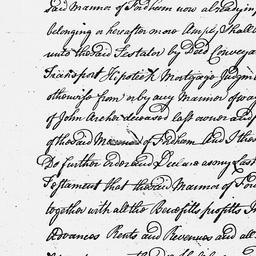 said Mannor of Fordham now already in
belonging or hereafter more Amply shall
unto the said Testator by Deed Conveya
Lease
otherwise from or by any Mannor of way
of John Archer deceased last owner and
of the said Mannor of Fordham And I ther
Do further order and Declare as my Last
Testament that the said Mannor of For
together with all the Benefitts profitts In
Advances Rents and Revenues and all